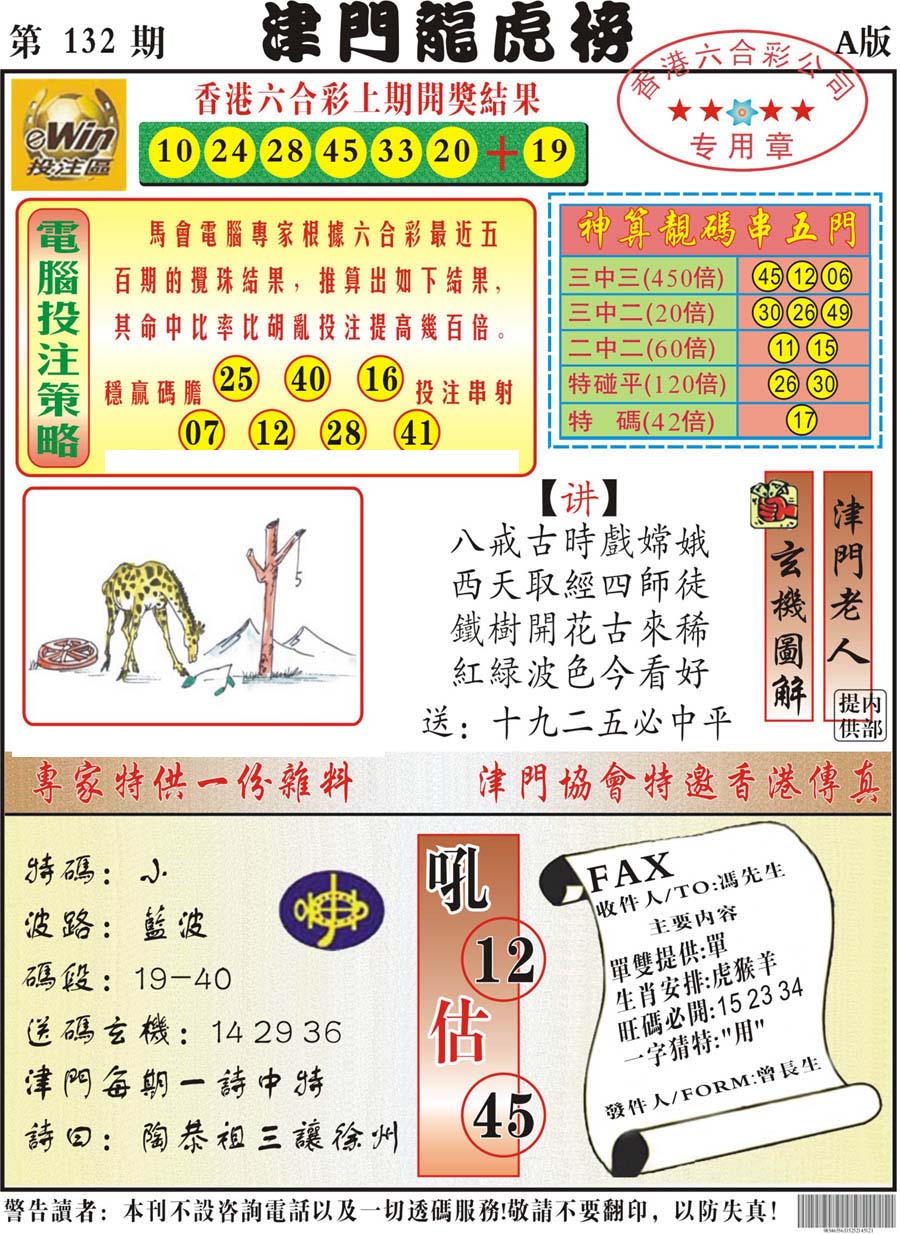 第 132 期
津門龍虎榜
A版
香港六合彩公司
专用章
eWin
投注區
香港六合彩上期開獎結果
10 24 28 45 33 20 + 19
電腦投注策略
馬會電腦專家根據六合彩最近五
百期的攪珠結果，推算出如下結果，
其命中比率比胡亂投注提高幾百倍。
穩贏碼膽 25 40 16 投注串射
07 12 28 41
神算靚碼串五門
三中三(450倍) 45 12 06
三中二(20倍) 30 26 49
二中二(60倍) 11 15
特碰平(120倍) 26 30
特 碼(42倍) 17
5
【讲】
八戒古時戲嫦娥
西天取經四師徒
鐵樹開花古來稀
紅緑波色今看好
送：十九二五必中平
玄機圖解
津門老人
内部提供
專家特供一份雜料
津門協會特邀香港傳真
特碼：小
波路：藍波
碼段：19-40
送碼玄機：14 29 36
津門每期一詩中特
詩曰：陶恭祖三讓徐州
吼
12
估
45
FAX
收件人/TO:馮先生
主要内容
單雙提供:單
生肖安排:虎猴羊
旺碼必開:15 23 34
一字猜特:"用"
發件人/FORM:曾長生
警告讀者：本刊不設咨詢電話以及一切透碼服務!敬請不要翻印，以防失真！